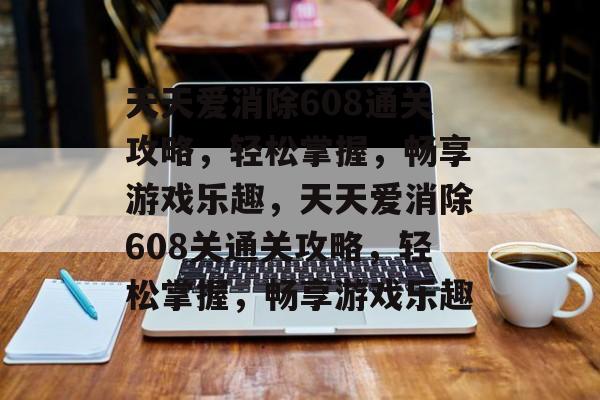 天天爱消除608通关
攻略，轻松掌握，畅享
游戏乐趣，天天爱消除
608关通关攻略，轻
松掌握，畅享游戏乐趣